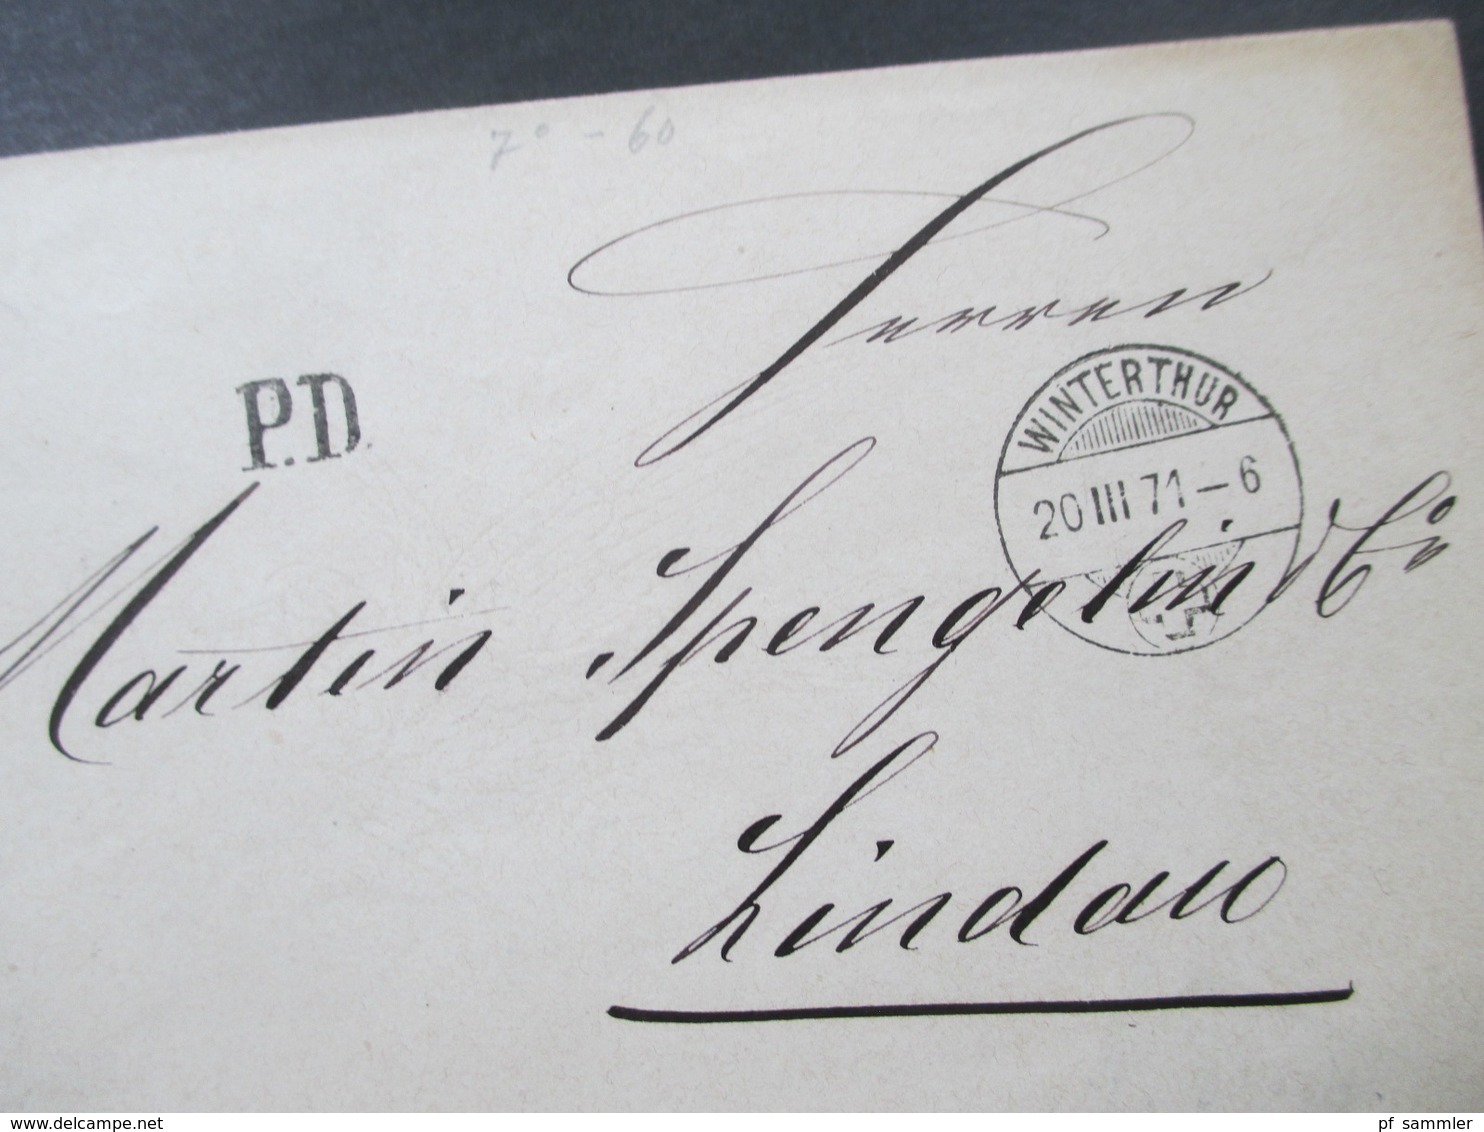 7° - 60
Herren
P.D.
WINTERTHUR
20 III 71 - 6
Martin Spengelin & Cie
Lindau
www.delcampe.net
pf_sammler